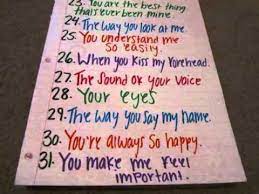 23. You are the best thing
that's ever been mine.
24. The way you look at me.
25. You understand me
so easily.
26. When you kiss my forehead.
27. The sound of your voice
28. Your eyes
29. The way you say my name.
30. You're always so happy.
31. You make me feel
important.